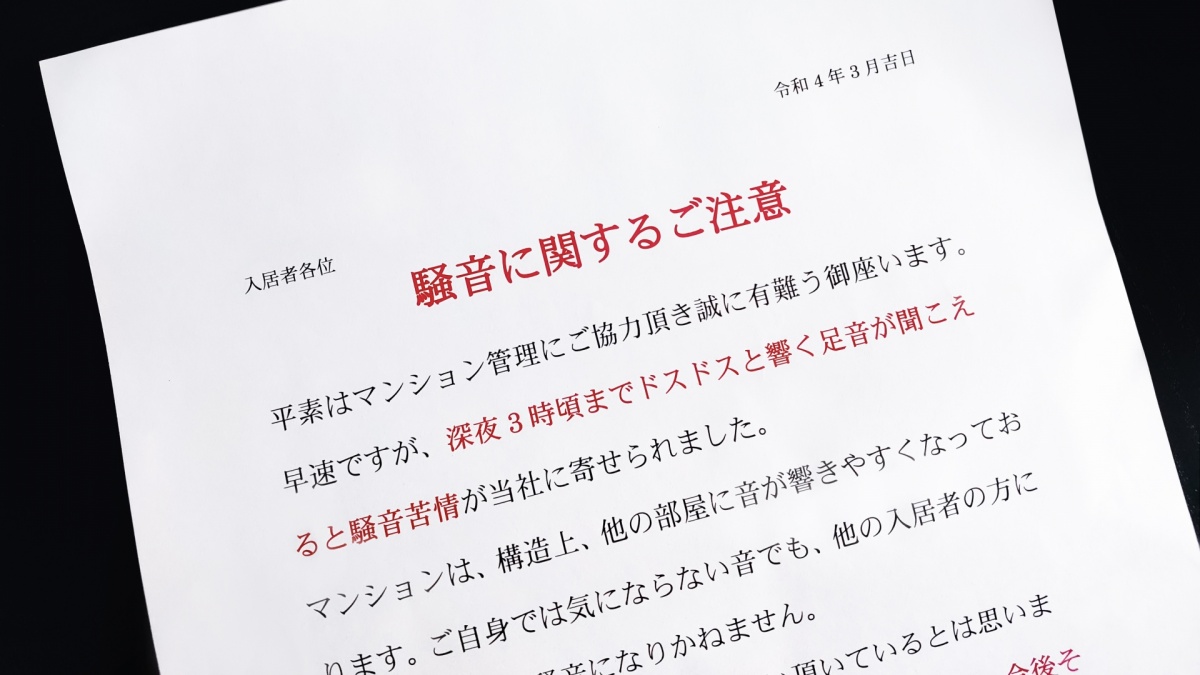 令和4年3月吉日
入居者各位
騒音に関するご注意
平素はマンション管理にご協力頂き誠に有難う御座います。
早速ですが、深夜3時頃までドスドスと響く足音が聞こえ
ると騒音苦情が当社に寄せられました。
マンションは、構造上、他の部屋に音が響きやすくなってお
ります。ご自身では気にならない音でも、他の入居者の方に
騒音になりかねません。
頂いているとは思いま
今後そ